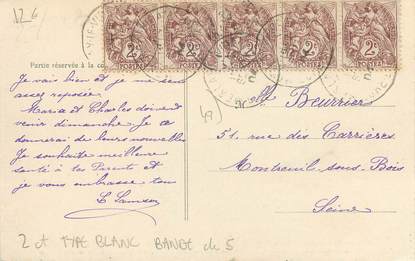 126
2c 2c 2c 2c 2c
POSTES POSTES POSTES POSTES POSTES
Partie réservée à la co
Je vais bien et je me sens
assez reposée.
Maria et Charles doivent
venir dimanche. Je te
donnerai de leurs nouvelles
Je souhaite meilleure
santé à tes Parents et
je vous embrasse. ton
49)
Mlle Beurrier
51, rue des Carrières
Montreuil-sous-Bois
Seine
2 ct TYPE BLANC BANDE de 5